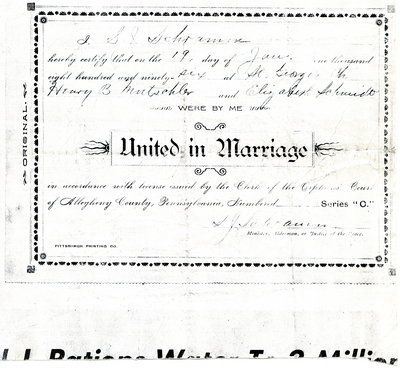 I, S J Schramm
hereby certify that on the 19, day of Jan. one thousand
eight hundred and ninety-six at St. George Ch
Henry B and Elizabeth Schmidt
WERE BY ME
United in Marriage
in accordance with license issued by the Clerk of the Orphans' Court
of Allegheny County, Pennsylvania, Numbered Series "C."
S J Schramm
Minister, Alderman, or Justice of the Peace.
PITTSBURGH PRINTING CO.
ORIGINAL
L.I. Rations Water To 2 Million